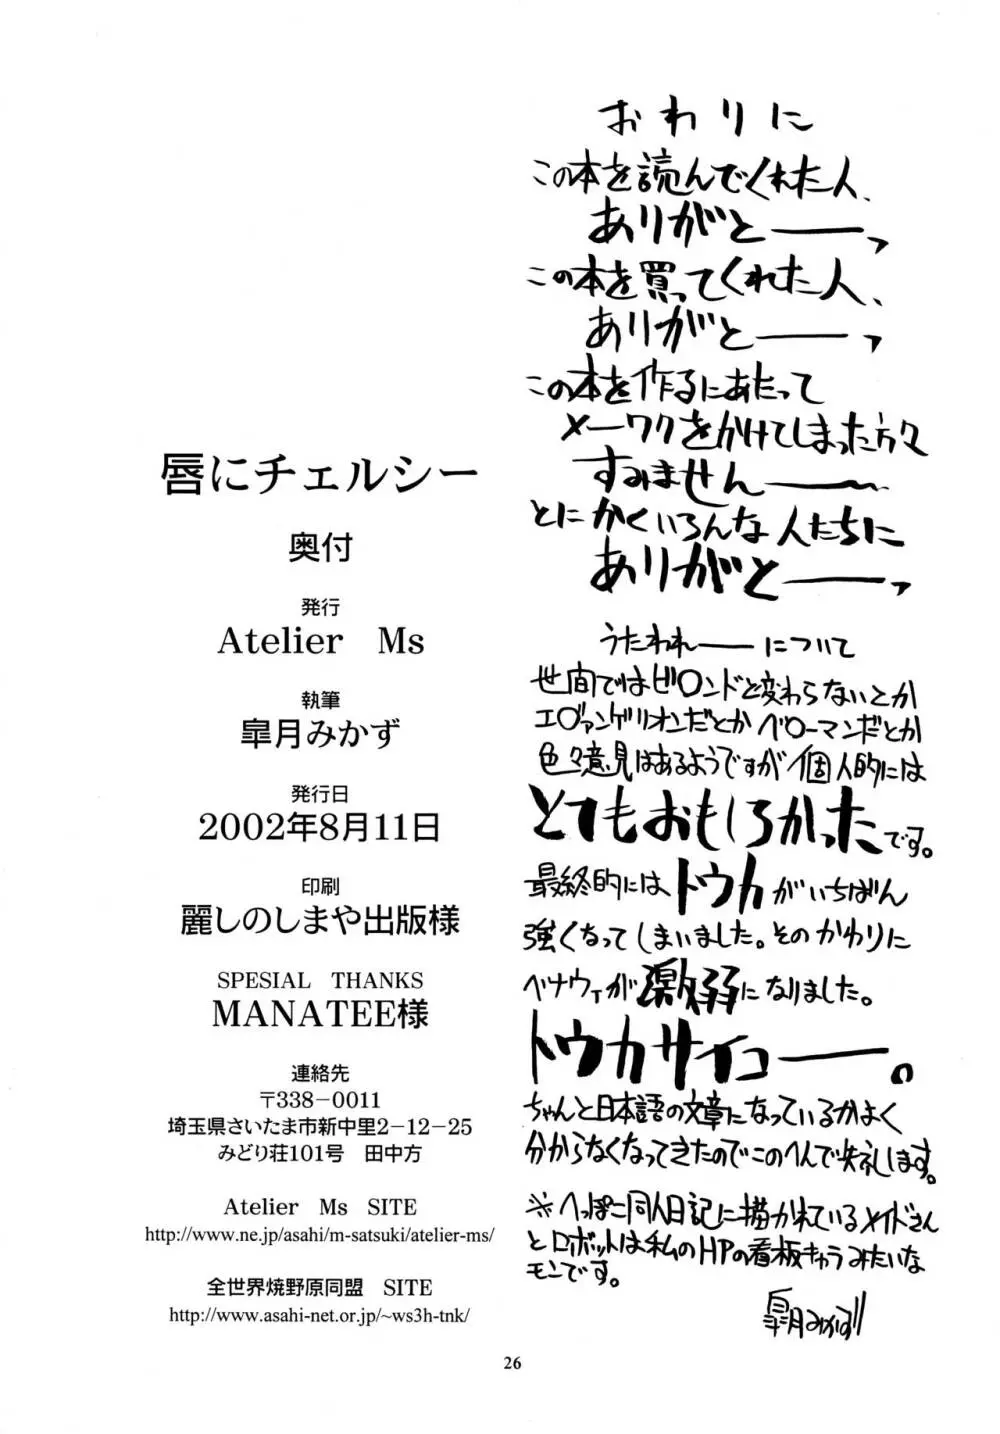 おわりに
この本を読んでくれた人、
ありがとーーっ
この本を買ってくれた人、
ありがとーーっ
この本を作るにあたって
メーワクをかけてしまった方々
すみませんー〜
とにかくいろんな人たちに
ありがとーーっ
うたわれーーについて
世間ではビ〇ンドと変わらないとか
エ〇ァンゲリオンだとかベ〇ーマンだとか
色々意見はあるようですが個人的には
とてもおもしろかったです。
最終的にはトウカがいちばん
強くなってしまいました。そのかわりに
ベナウィが激弱になりました。
トウカサイコーー。
ちゃんと日本語の文章になっているかよく
分からなくなってきたのでこのへんで失礼します。
※へっぽこ同人日記に描かれているメイドさん
とロボットは私のHPの看板キャラみたいな
モンです。
皐月みかず
唇にチェルシー
奥付
発行
Atelier Ms
執筆
皐月みかず
発行日
2002年8月11日
印刷
麗しのしまや出版様
SPESIAL THANKS
MANATEE様
連絡先
〒338-0011
埼玉県さいたま市新中里2-12-25
みどり荘101号 田中方
Atelier Ms SITE
http://www.ne.jp/asahi/m-satsuki/atelier-ms/
全世界焼野原同盟 SITE
http://www.asahi-net.or.jp/~ws3h-tnk/
26